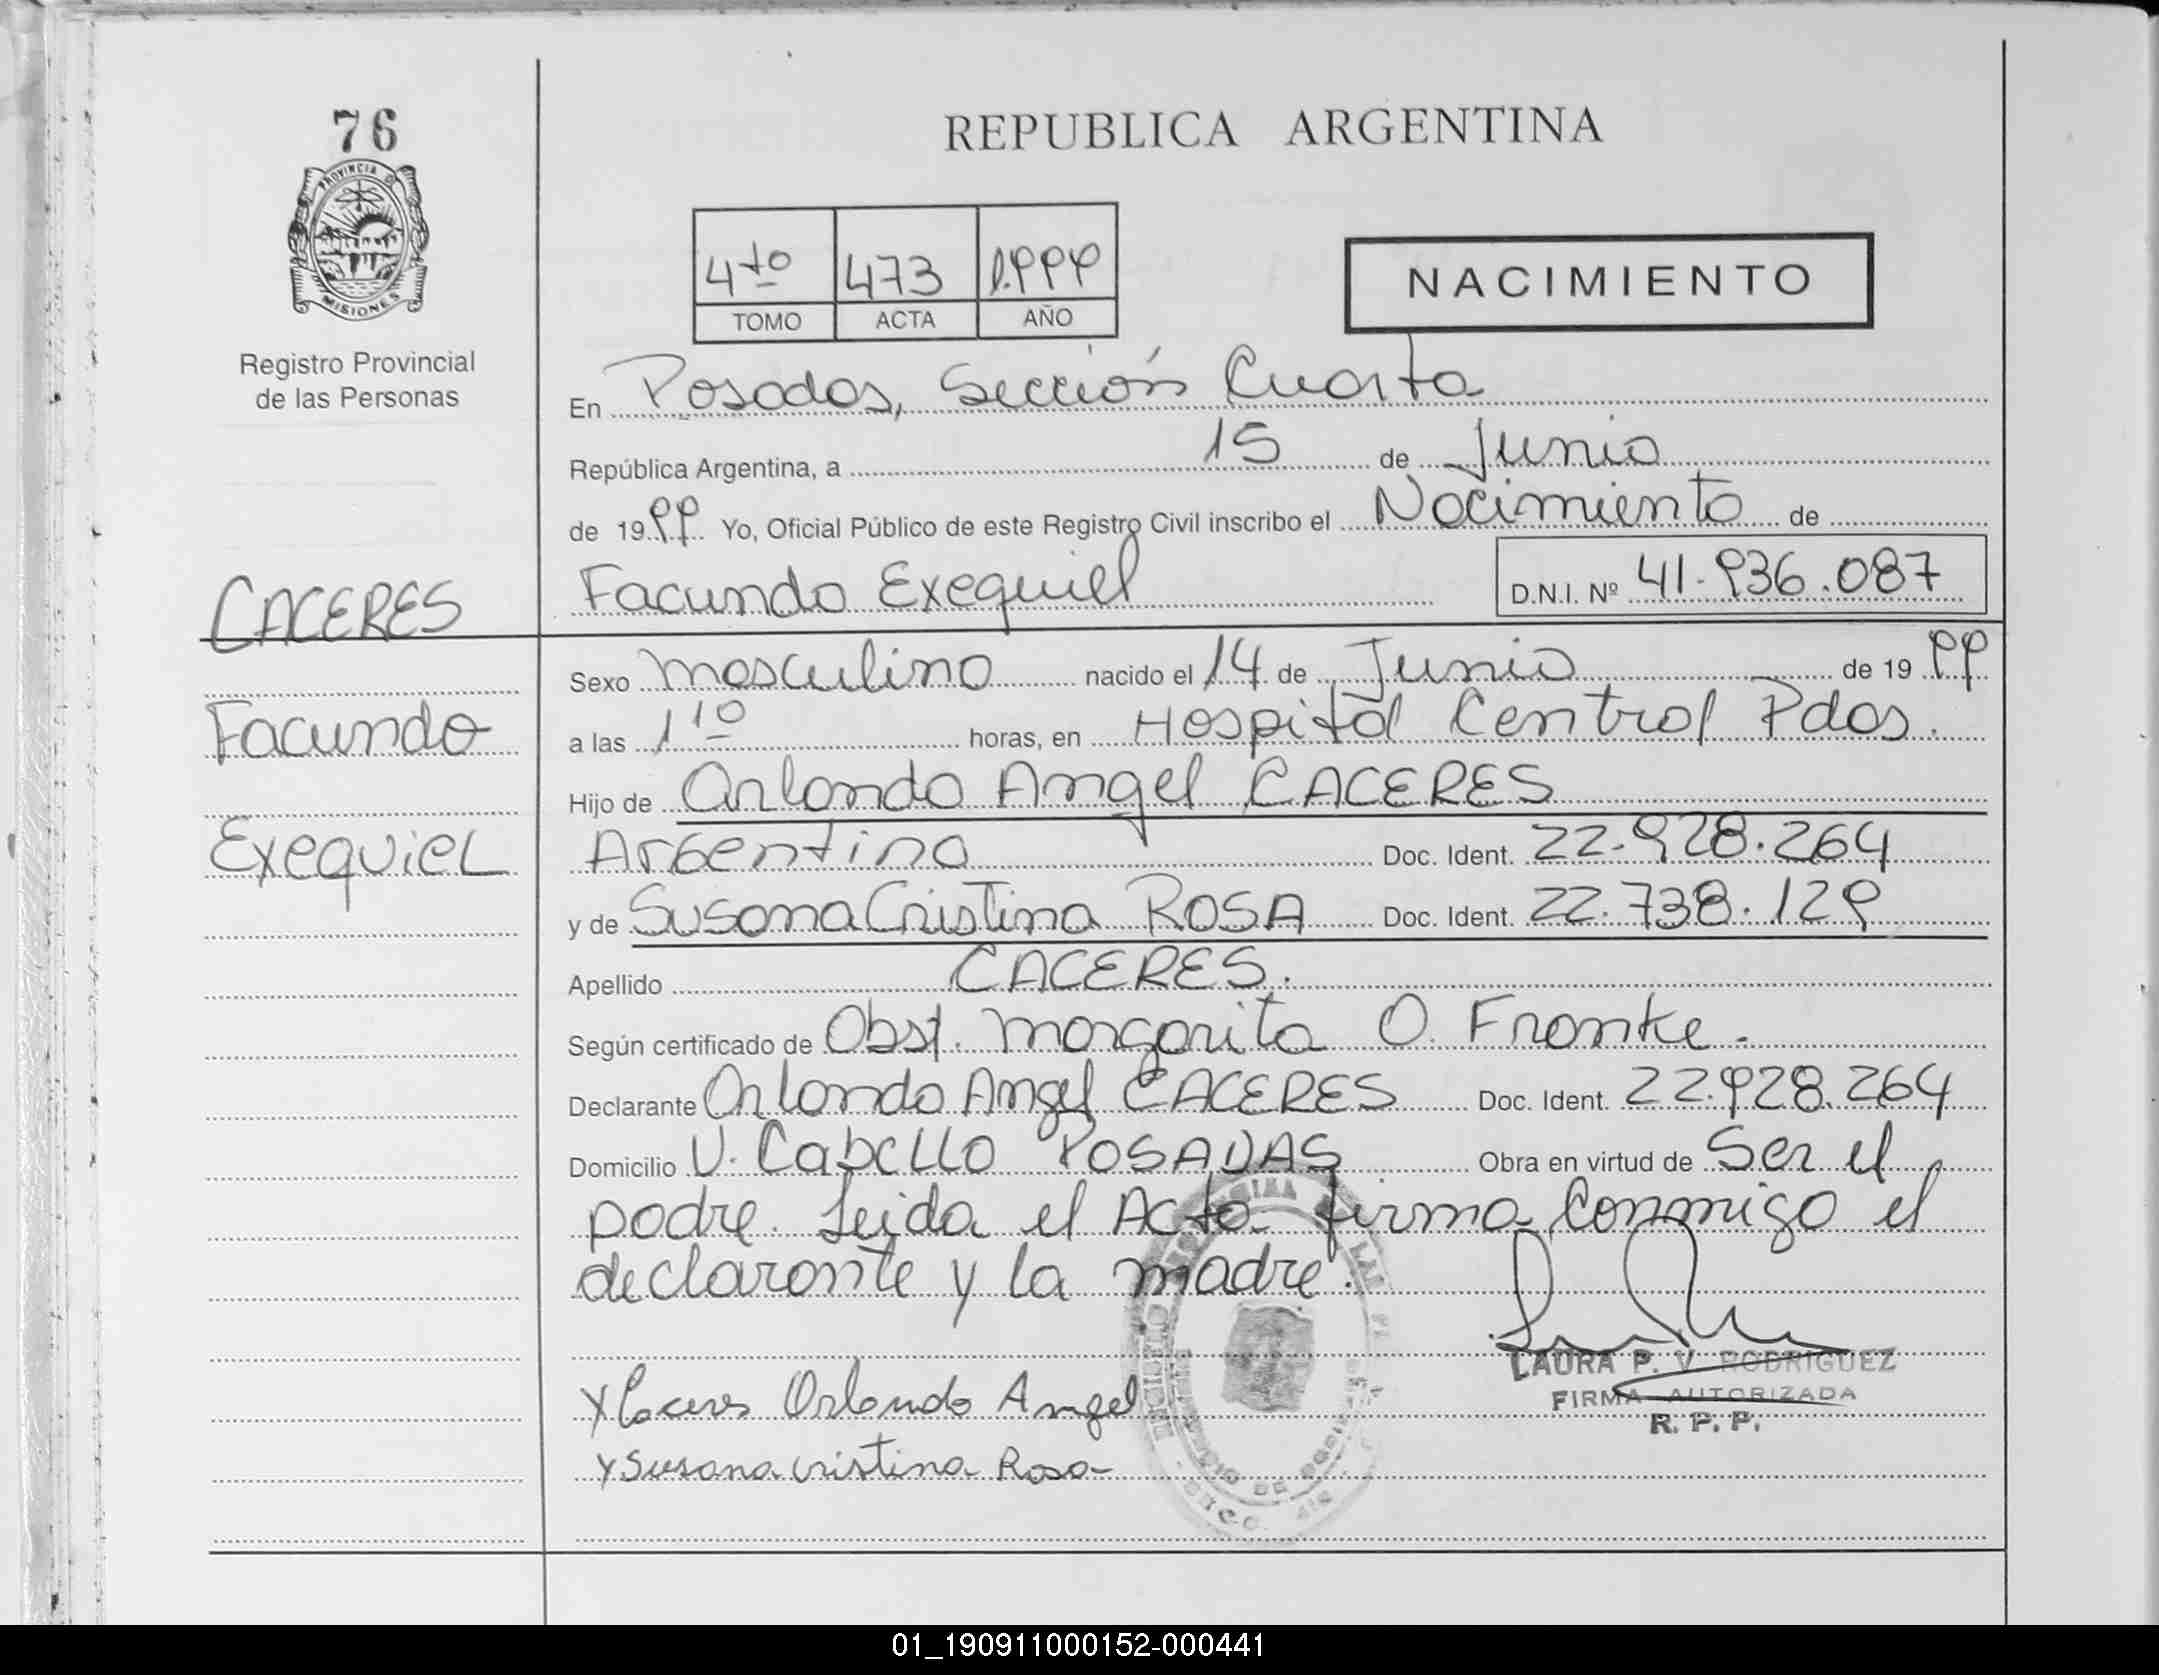 76
PROVINCIA D
MISIONES
Registro Provincial
de las Personas
REPUBLICA ARGENTINA
4to 473 1.999
TOMO ACTA AÑO
NACIMIENTO
En Posadas, Sección Cuarta
República Argentina, a 15 de Junio
de 1999 Yo, Oficial Público de este Registro Civil inscribo el Nacimiento de
Facundo Exequiel D.N.I. Nº 41.936.087
CACERES
Facundo
Exequiel
Sexo masculino nacido el 14 de Junio de 1999
a las 1 10 horas, en Hospital Central Pdas.
Hijo de Orlando Angel CACERES
Argentina Doc. Ident. 22.928.264
y de Susana Cristina ROSA Doc. Ident. 22.738.129
Apellido CACERES.
Según certificado de Obst. Margarita O. Franke.
Declarante Orlando Angel CACERES Doc. Ident. 22.928.264
Domicilio V. Cabello POSADAS Obra en virtud de Ser el
padre. Leida el Acta firma conmigo el
declarante y la madre.
LAURA P. V. RODRIGUEZ
FIRMA AUTORIZADA
R. P. P.
x Caceres Orlando Angel
x Susana cristina Rosa
01_190911000152-000441